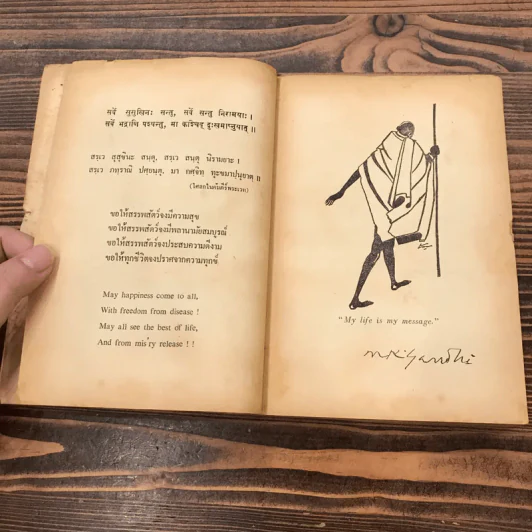 सर्वे सुसुखिनः सन्तु, सर्वे सन्तु निरामयाः ।
सर्वे भद्राणि पश्यन्तु, मा कश्चिद् दुःखमाप्नुयात् ॥
สรฺเว สุสุขินะ สนฺตุ, สรฺเว สนฺตุ นิรามยาะ ।
สรฺเว ภทฺราณิ ปศฺยนฺตุ, มา กศฺจิทฺ ทุะขมาปฺนุยาตฺ ॥
ขอให้สรรพสัตว์จงมีความสุข
ขอให้สรรพสัตว์จงมีพลานามัยสมบูรณ์
ขอให้สรรพสัตว์จงประสบความดีงาม
ขอให้ทุกชีวิตจงปราศจากความทุกข์
May happiness come to all,
With freedom from disease !
May all see the best of life,
And from mis'ry release ! !
"My life is my message."
M K Gandhi